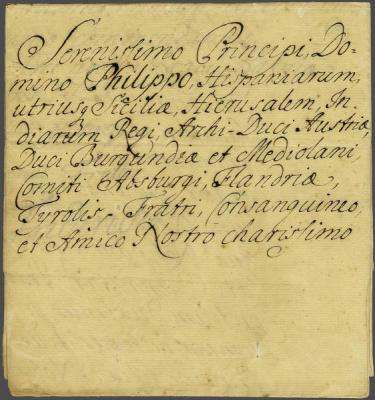 Serenissimo Principi, Do-
mino Philippo, Hispaniarum,
utriusq Siciliæ, Hierusalem, In-
diarum Regi, Archi-Duci Austriæ,
Duci Burgundiæ et Mediolani,
Comiti Absburgi, Flandriæ,
Tyrolis, Fratri, Consanguineo,
et Amico Nostro charissimo